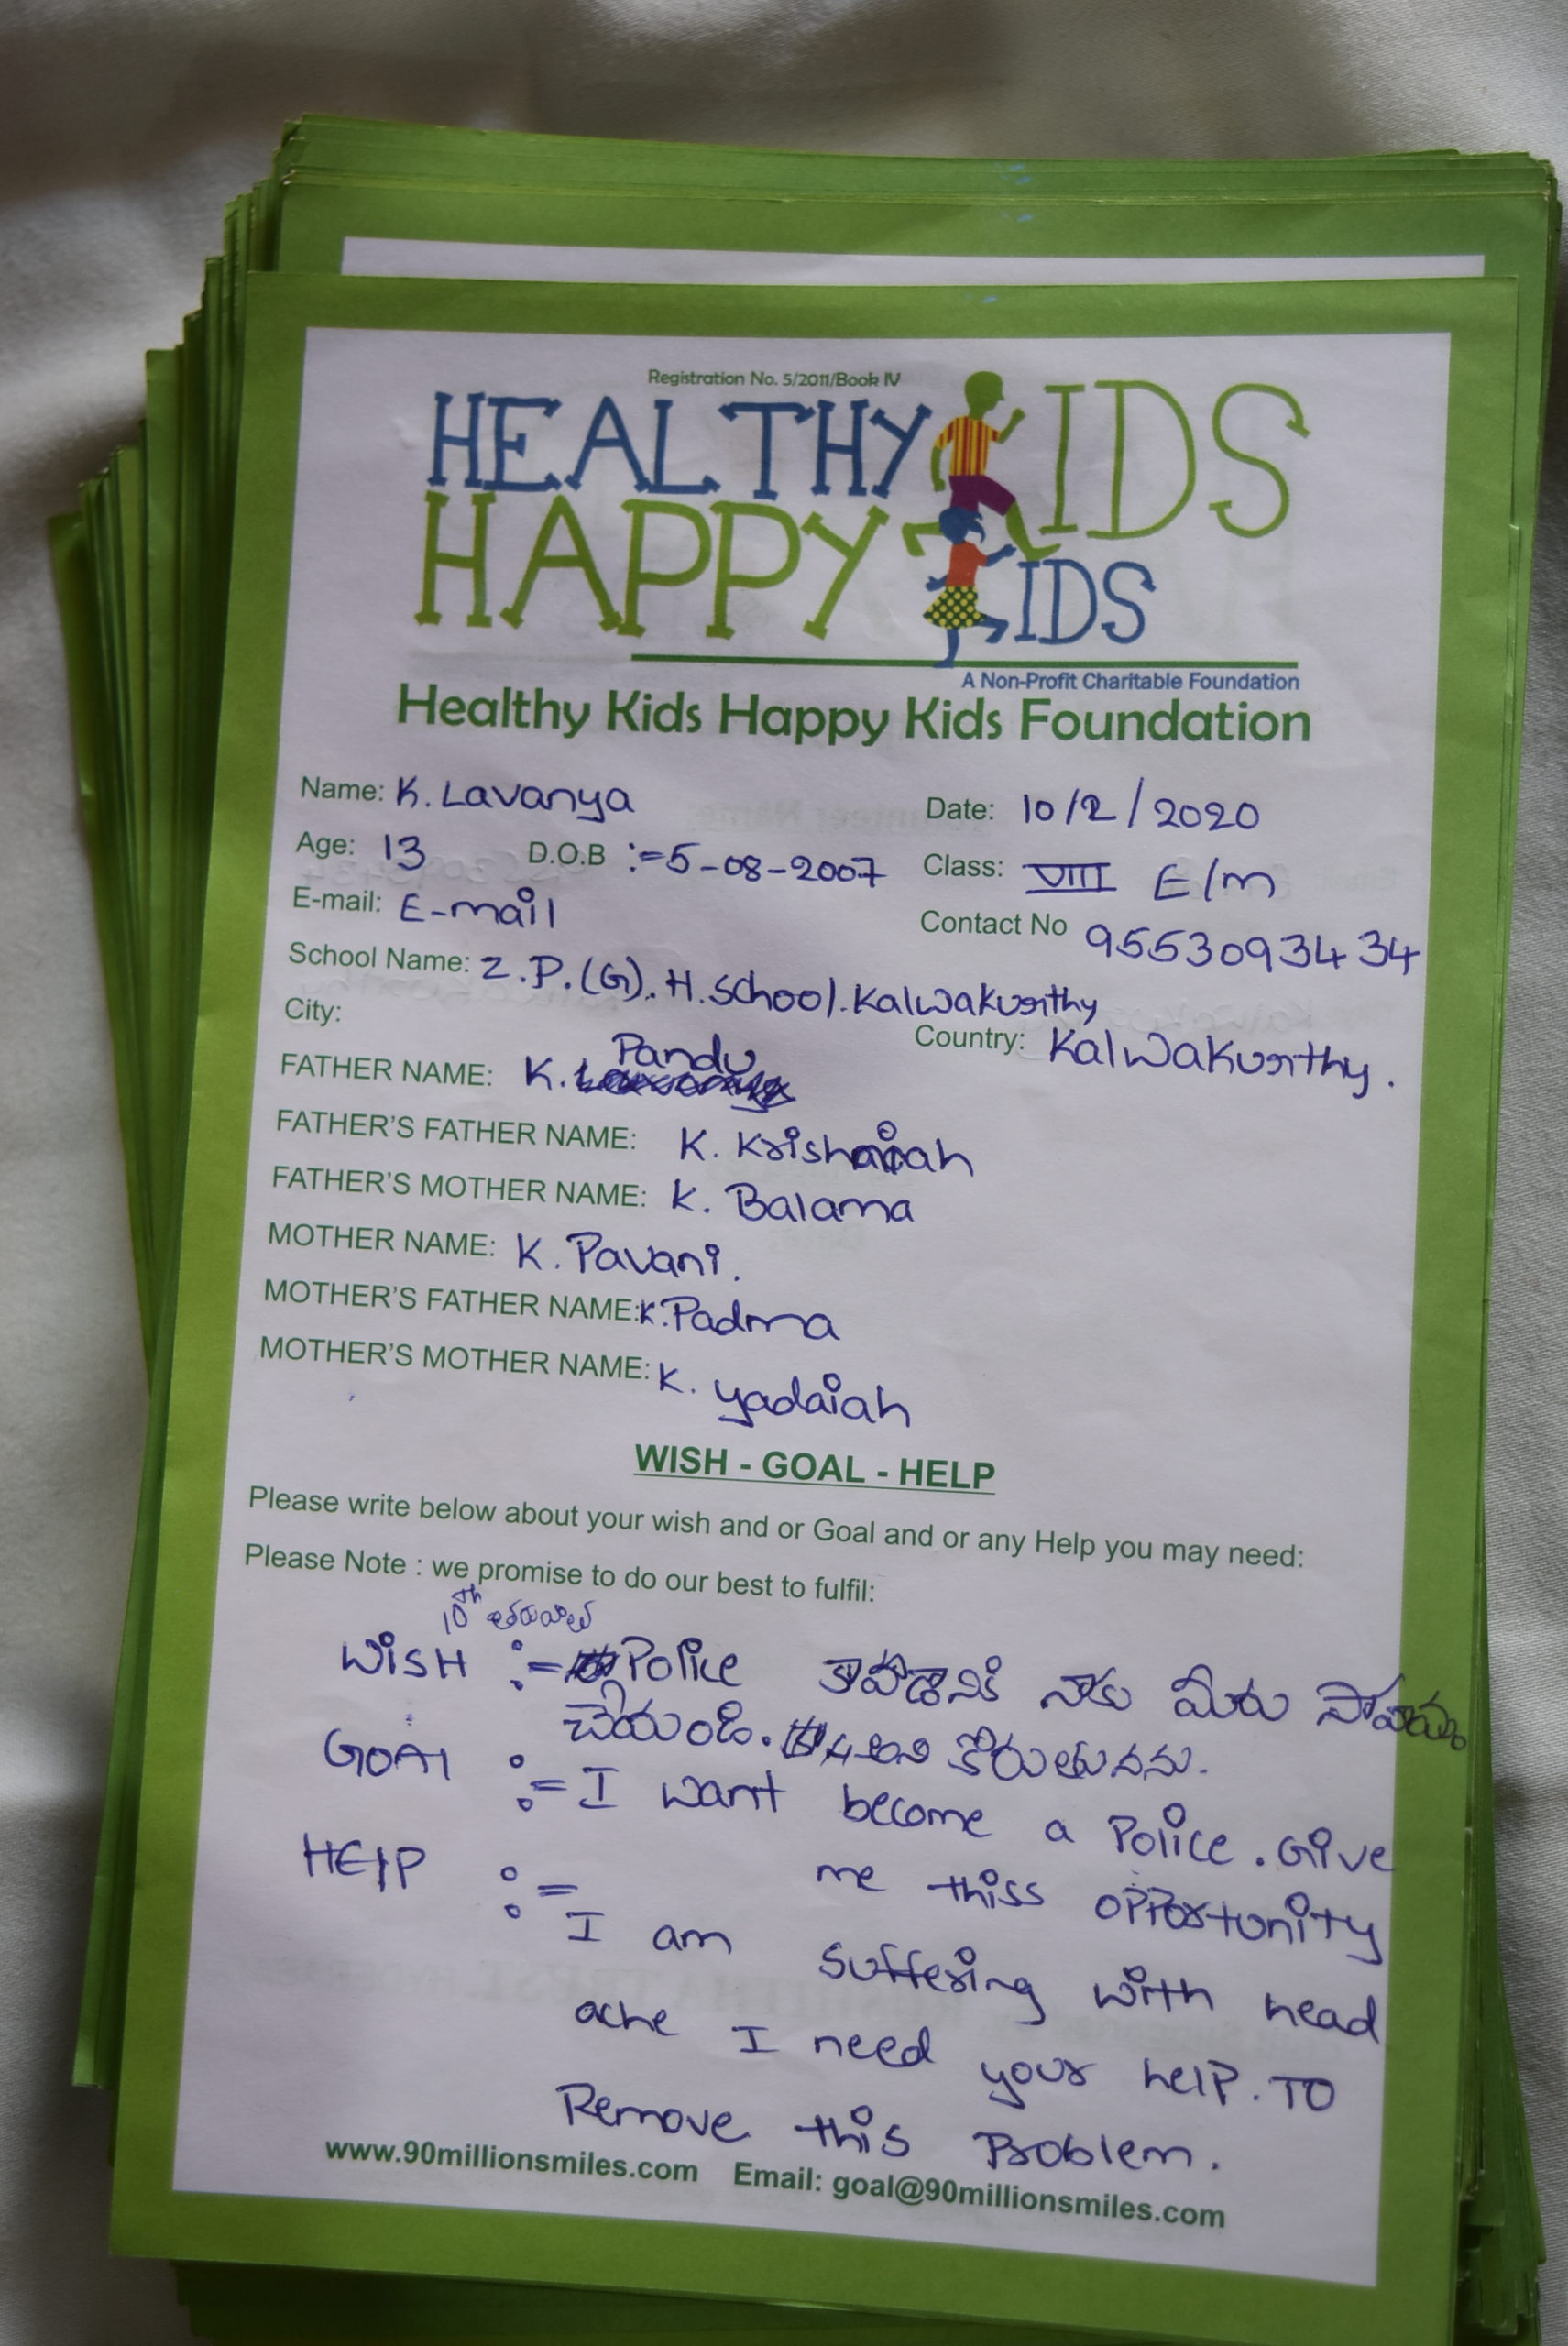 Registration No. 5/2011/Book IV
HEALTHY KIDS
HAPPY KIDS
A Non-Profit Charitable Foundation
Healthy Kids Happy Kids Foundation
Name: K. Lavanya Date: 10/2/2020
Age: 13 D.O.B :- 5-08-2007 Class: VIII E/m
E-mail: E-mail Contact No 9553093434
School Name: Z.P.(G).H.School.Kalwakurthy
City: Country: Kalwakurthy.
FATHER NAME: K. Pandu
FATHER'S FATHER NAME: K. Krishnaiah
FATHER'S MOTHER NAME: K. Balama
MOTHER NAME: K. Pavani.
MOTHER'S FATHER NAME: K. Padma
MOTHER'S MOTHER NAME: K. yadaiah
WISH - GOAL - HELP
Please write below about your wish and or Goal and or any Help you may need:
Please Note : we promise to do our best to fulfil:
10th
WISH := Police కావడానికి నాకు మీరు
చేయండి. అని కోరుతునను.
GOAl := I want become a Police. Give
me thiss opportunity
HElP :=
I am suffering with head
ache I need your help. TO
Remove this Problem.
www.90millionsmiles.com Email: goal@90millionsmiles.com